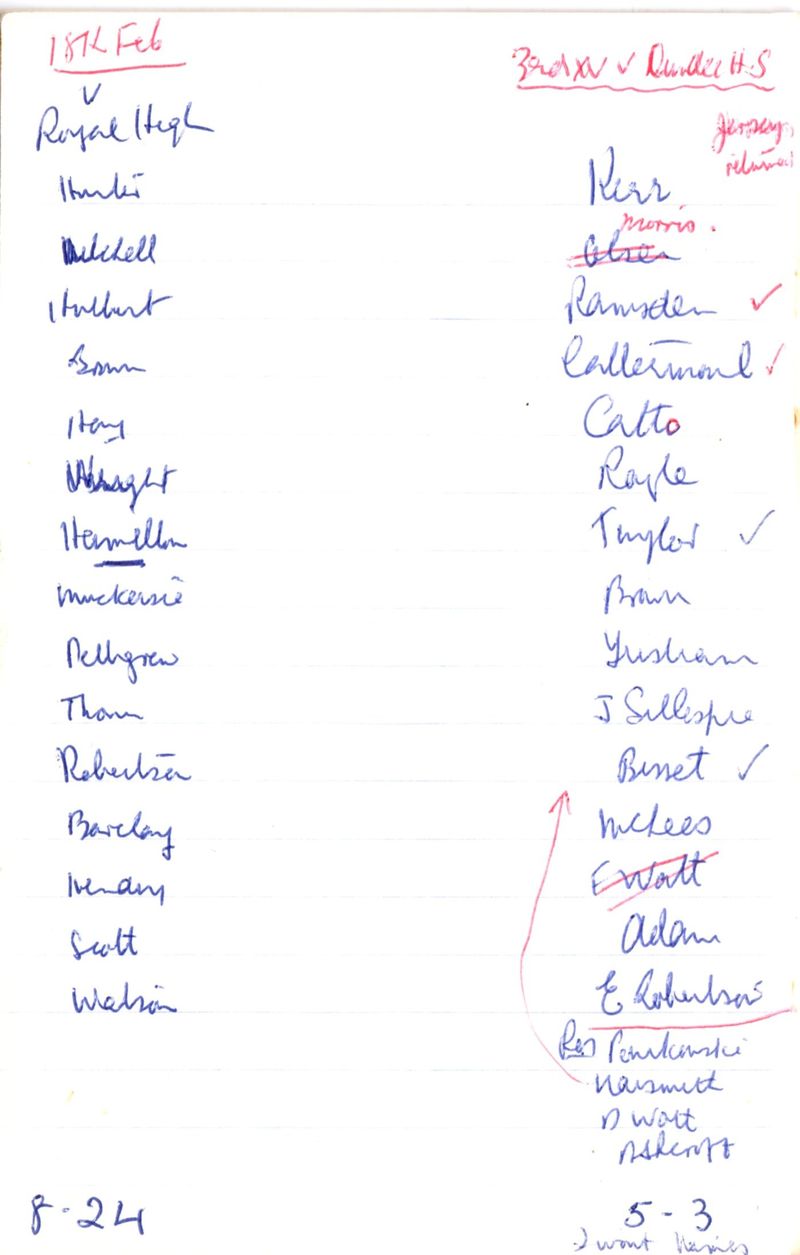 18th Feb
v
Royal High
Hunter
Mitchell
Hulbert
Brown
Hay
Haxmellon
Muckersie
Pettigrew
Thom
Robertson
Barclay
Hendry
Scott
Watson
8 - 24
3rd XV v Dundee H.S
Jerseys
returned
Kerr
Morris.
Olsen
Ramsden ✓
Cattermoul ✓
Catto
Royle
Taylor ✓
Brown
J Gillespie
Bisset ✓
McLees
E Watt
Adam
E Robertson
Res Penrkowski
Naismith
D Watt
Ashcroft
5 - 3
2 want Names